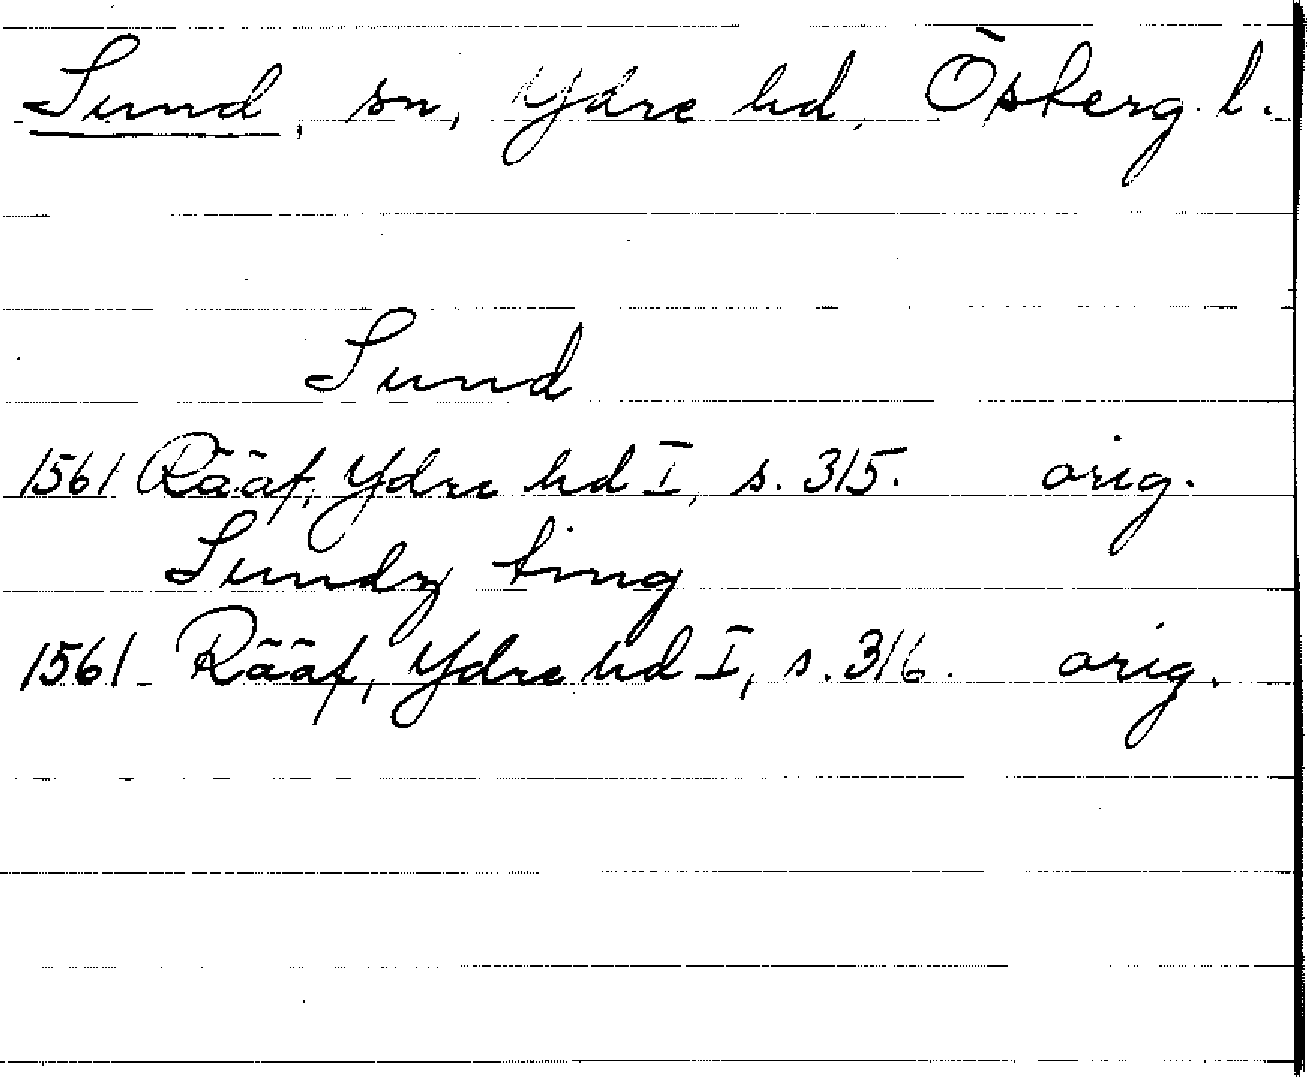 Sund, sn, Ydre hd, Österg. l.
Sund
1561 Rääf, Ydre hd I, s. 315. orig.
Sundz ting
1561 Rääf, Ydre hd I, s. 316. orig.